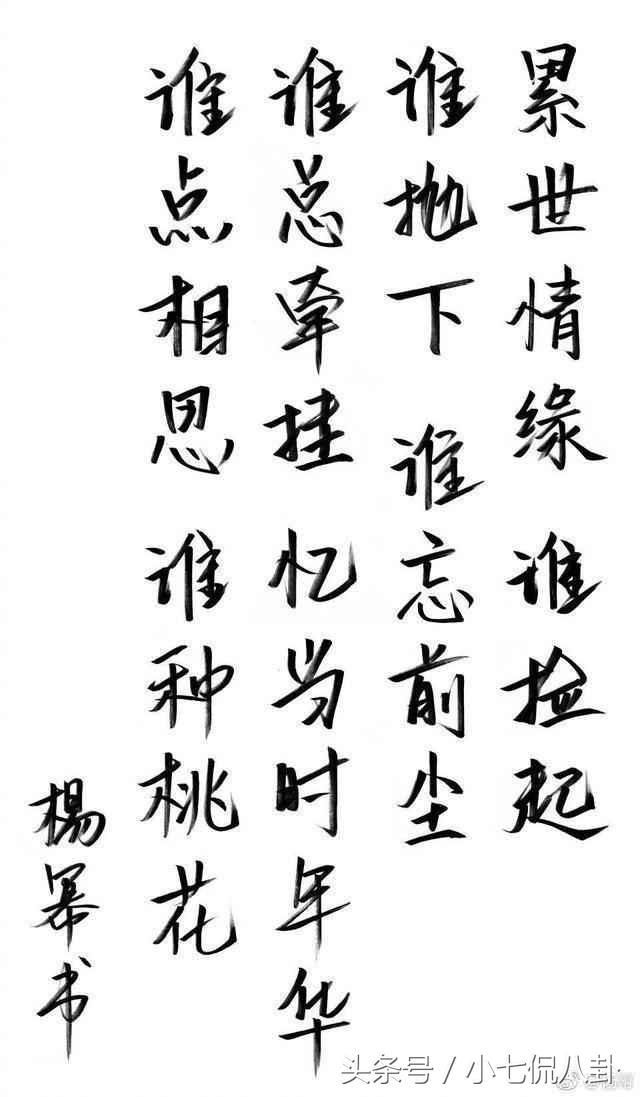 累世情缘 谁捡起
谁抛下 谁忘前尘
谁总牵挂 忆当时年华
谁点相思 谁种桃花
楊幂书
头条号 / 小七侃八卦